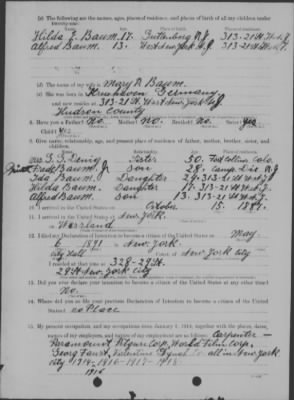 (c) The following are the names, ages, places of residence, and places of birth of all my children under
twenty-one:
Hilda E. Baum. 17. Guttenberg N.J. 313-21 St. W.N.J.
Alfred Baum. 13. West New York N.J. 313-21 St. W.N.Y.
(d) The name of my wife is Mary A. Baum
(e) She was born in Germany
and now resides at 313-21 St. West New York N.J.
Hudson County
8. Have you a Father? No. Mother? No. Brother? No. Sister? Yes
Yes
9. Give name, relationship, age, and present place of residence of father, mother, brother, sister, and
children.
Sister 50. Fort Collins Colo.
Fred Baum Jr. Son 28. Camp Dix N.J.
Ida Baum. Daughter 29. 313-21 St. W.N.J.
Hilda Baum. Daughter 17. 313-21 St. W.N.J.
Alfred Baum Son 13. 313-21 St. W.N.J.
10. I arrived in the United States on October 15. 1887.
11. I arrived in the United States at New York.
12. I filed my Declaration of Intention to become a citizen of the United States on May
6 1891 in New York.
City Hall New York City
at which time I resided at 328-29 St.
29 St New York City
13. Did you ever declare your intention to become a citizen of the United States at any other time?
No.
14. Where did you file your previous Declaration of Intention to become a citizen of the
United States? no Place
15. My present occupation, and my occupations since January 1, 1914, together with the places, dates,
names of my employers, and nature of my employment are as follows: Carpenter
Paramount Picture Corp. World Film Corp.
Georg Faust, Valentine all in New York
City 1914-1916-1917-1918
1915